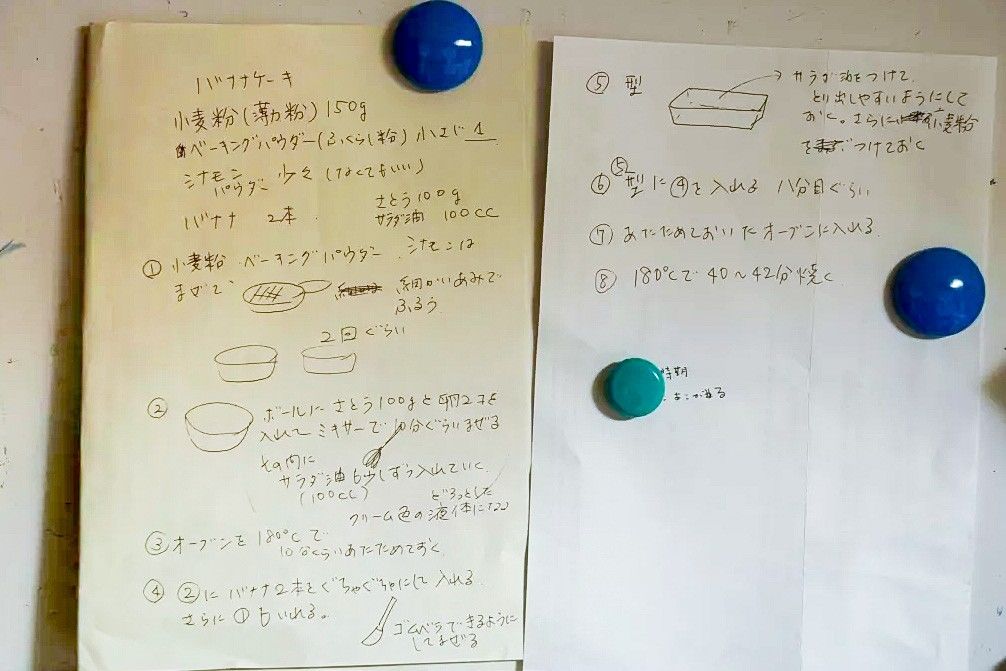 バナナケーキ
小麦粉(薄力粉) 150g
ベーキングパウダー(ふくらし粉) 小さじ 1
シナモン
パウダー 少々 (なくてもいい)
バナナ 2本
さとう 100g
サラダ油 100cc
① 小麦粉・ベーキングパウダー、シナモンは
まぜて、
細かいあみで
ふるう
2回ぐらい
② ボールに さとう100gと 卵2コを
入れて ミキサーで 10分ぐらいまぜる
その内に
サラダ油も少しずつ入れていく
(100cc)
どろっとした
クリーム色の液体になる
③ オーブンを 180°Cで
10分くらいあたためておく
④ ②に バナナ2本を ぐちゃぐちゃにして 入れる
さらに ①もいれる。
ゴムベラで きるように
してまぜる
⑤ 型
サラダ油をつけて、
とり出しやすいようにして
おく。さらに小麦粉
をつけておく
⑥ ⑤の型に④を入れる 八分目ぐらい
⑦ あたためておいたオーブンに入れる
⑧ 180°Cで 40〜42分 焼く
時期